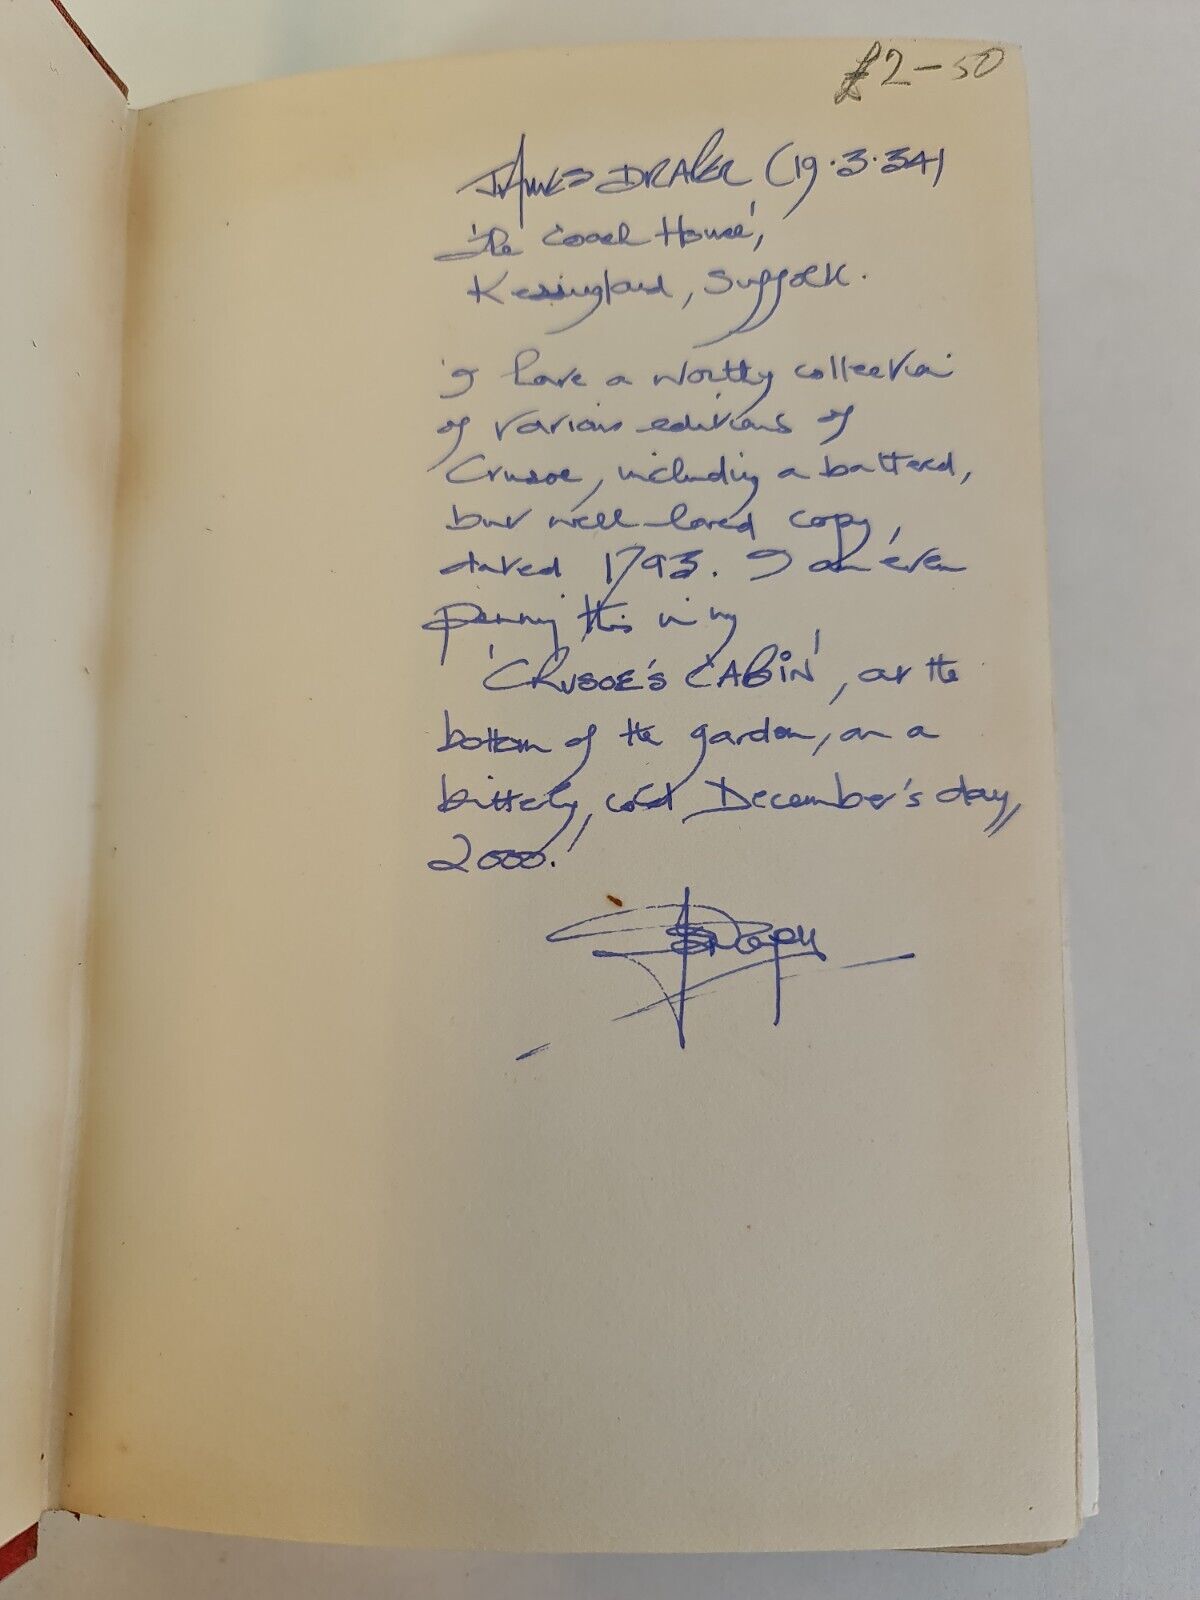 £2-50
JAMES DRAPER (19.3.34)
'The Coach House',
Kessingland, Suffolk.
'I have a worthy collection
of various editions of
Crusoe, including a battered,
but well-loved copy,
dated 1793. I am even
penning this in my
'CRUSOE'S CABIN', at the
bottom of the garden, on a
bitterly, cold December's day,
2000.'